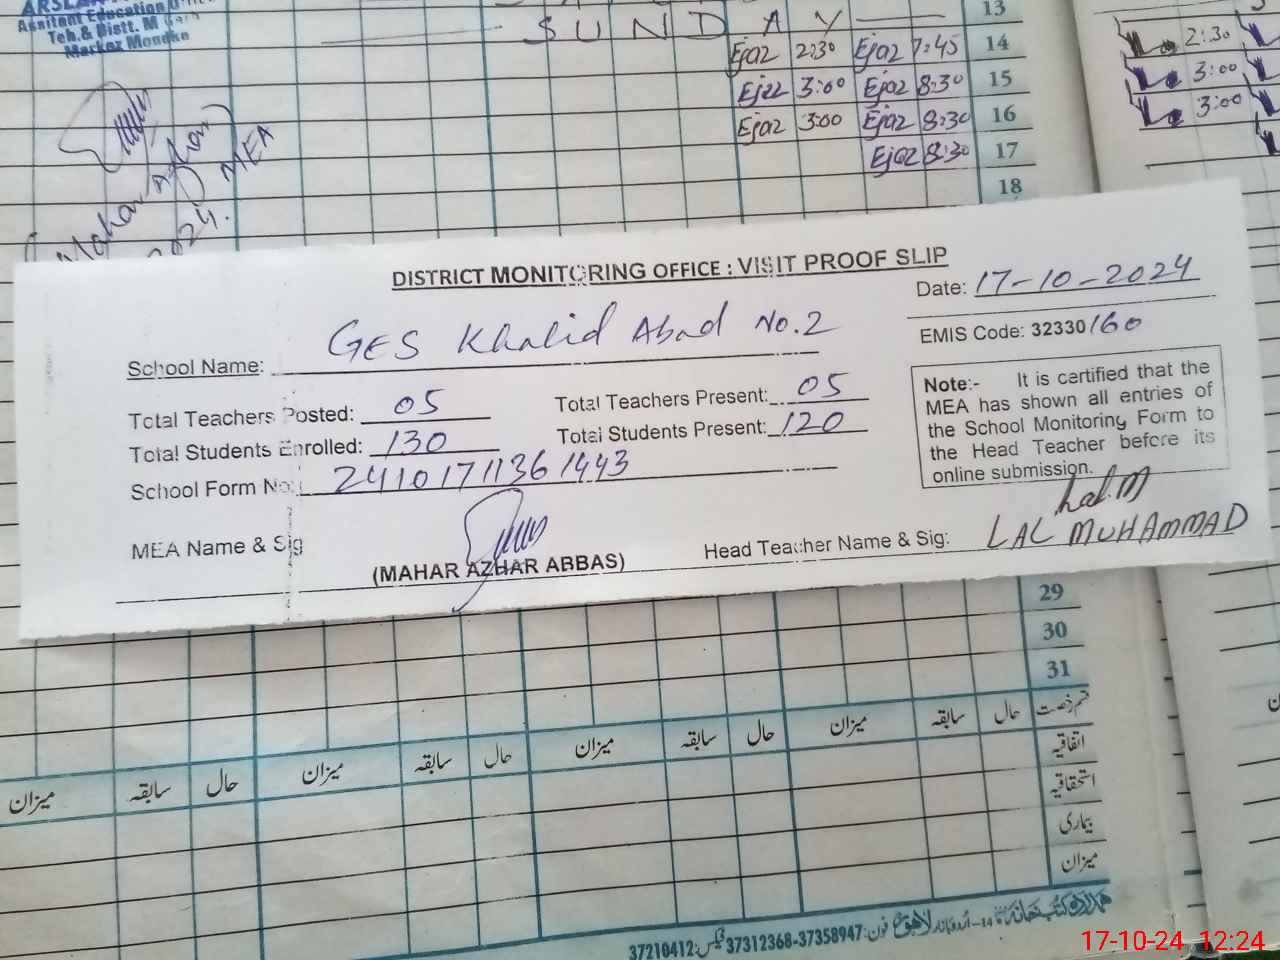 Assitant Education
Teh.& Distt. M
Markaz Mondka
S U N D A Y
13
Ejaz 2:30 Ejaz 7:45 14
Ejaz 3:00 Ejaz 8:30 15
Ejaz 3:00 Ejaz 8:30 16
Ejaz 8:30 17
18
2:30
3:00
3:00
MEA
2024.
DISTRICT MONITORING OFFICE : VISIT PROOF SLIP
Date: 17-10-2024
School Name: GES Khalid Abad No.2
EMIS Code: 32330160
Total Teachers Posted: 05 Total Teachers Present: 05
Total Students Enrolled: 130 Total Students Present: 120
School Form No: 24101711361443
Note:- It is certified that the
MEA has shown all entries of
the School Monitoring Form to
the Head Teacher before its
online submission.
MEA Name & Sig
(MAHAR AZHAR ABBAS)
Head Teacher Name & Sig: LAL MUHAMMAD
29
30
31
قسم رخصت حال سابقہ میزان حال سابقہ میزان حال سابقہ میزان حال سابقہ میزان
اتفاقیہ
استحقاقیہ
بیماری
میزان
لاہور فون:37358947-37312368 فیکس:37210412
17-10-24 12:24